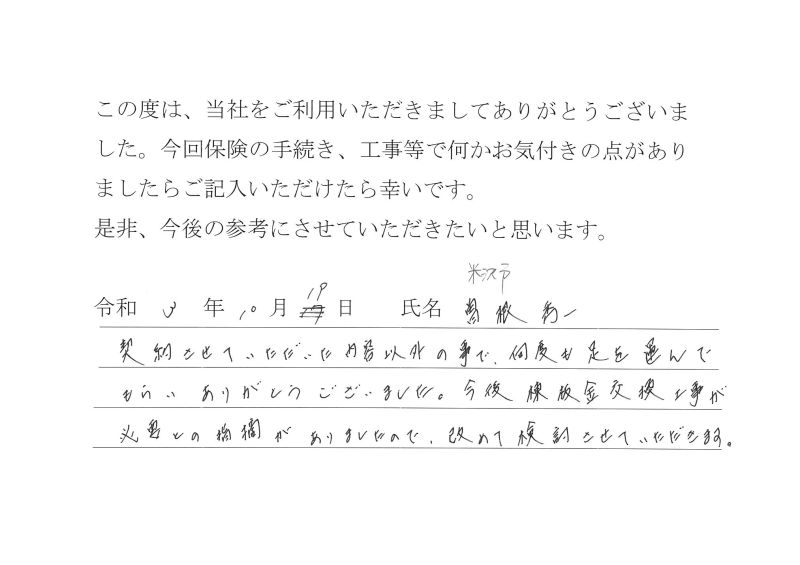 この度は、当社をご利用いただきましてありがとうございま
した。今回保険の手続き、工事等で何かお気付きの点があり
ましたらご記入いただけたら幸いです。
是非、今後の参考にさせていただきたいと思います。
米沢市
令和 3 年 10 月 19 日 氏名
契約させていただいた内容以外の事で、何度も足を運んで
もらいありがとうございました。今後棟板金交換工事が
必要との指摘がありましたので、改めて検討させていただきます。